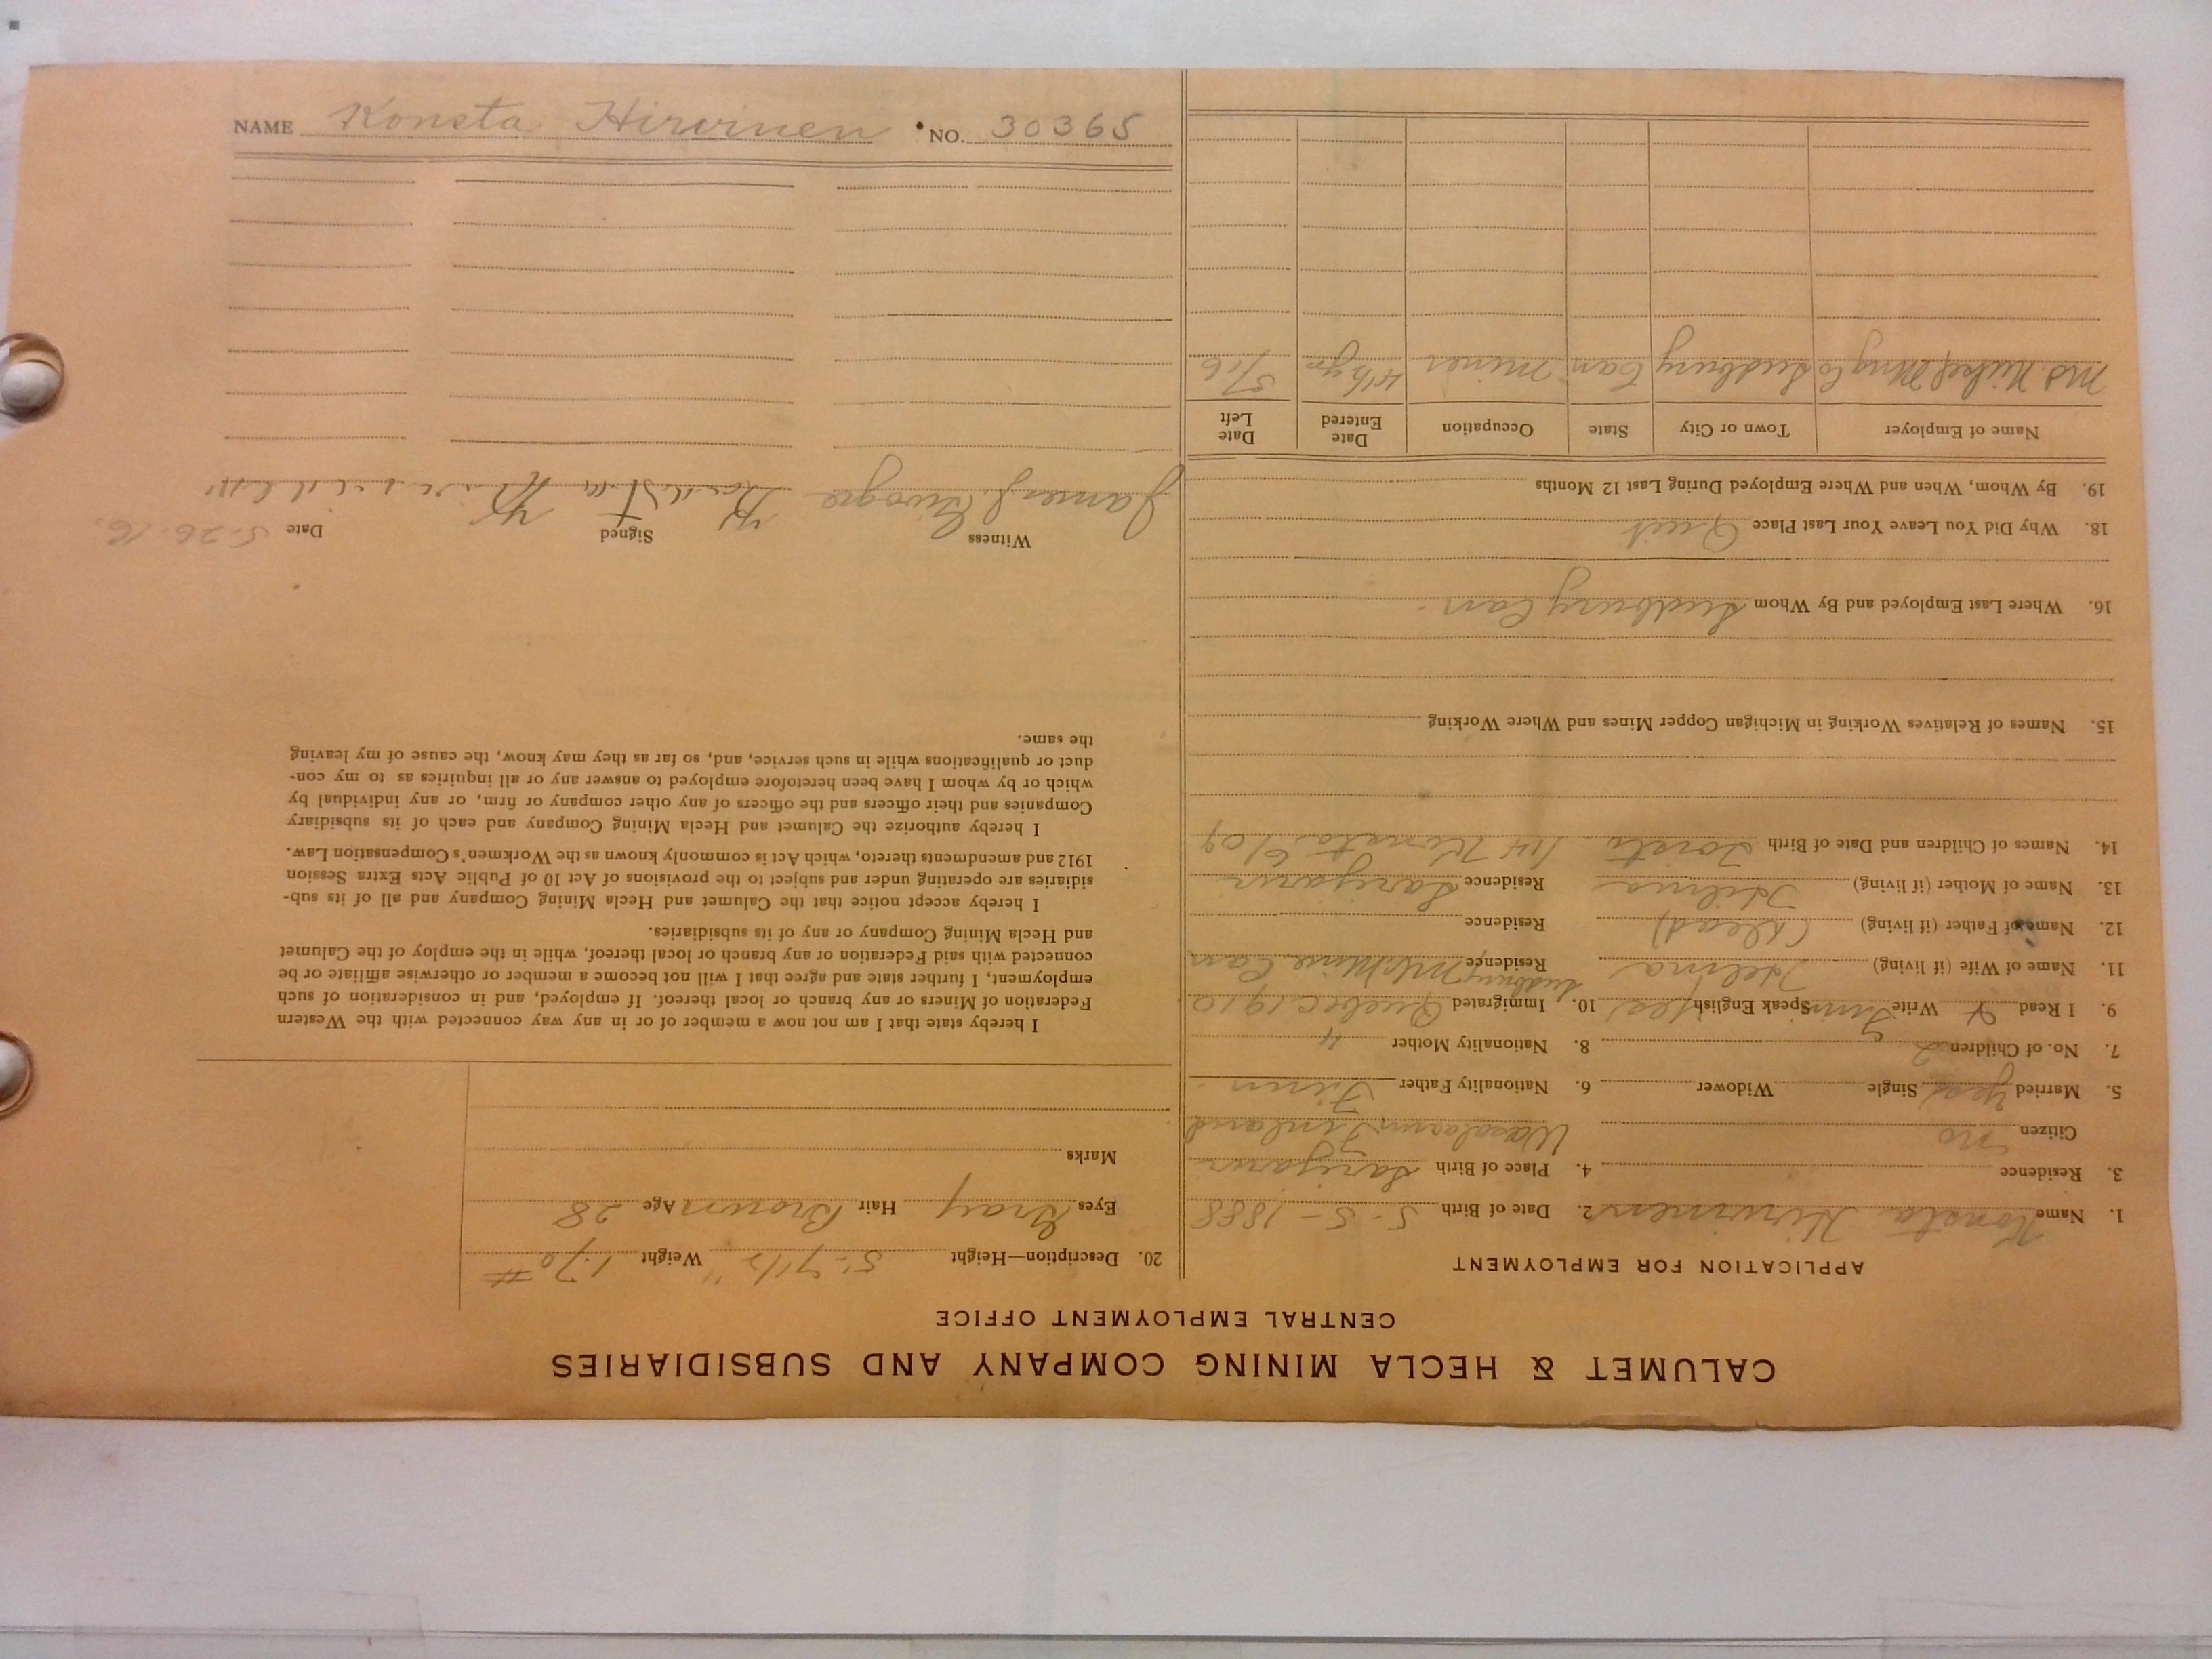 CALUMET & HECLA MINING COMPANY AND SUBSIDIARIES
CENTRAL EMPLOYMENT OFFICE
APPLICATION FOR EMPLOYMENT
1. Name Konsta Hirvinen 2. Date of Birth 5-5-1888
3. Residence 4. Place of Birth Sarijarvi
Citizen no Wasalaani Finland
5. Married yes Single Widower 6. Nationality Father Finn
7. No. of Children 2 8. Nationality Mother "
9. I Read Write Finn Speak English yes 10. Immigrated Quebec 1910
Sudbury Can
11. Name of Wife (if living) Helma Residence
12. Name of Father (if living) (dead) Residence
13. Name of Mother (if living) Hilma Residence Sarijarvi
14. Names of Children and Date of Birth 1/14 Konsta 6/09
15. Names of Relatives Working in Michigan Copper Mines and Where Working
16. Where Last Employed and By Whom Sudbury Can.
18. Why Did You Leave Your Last Place Quit
19. By Whom, When and Where Employed During Last 12 Months
Name of Employer Town or City State Occupation Date Entered Date Left
Md. Nickel Mng Co Sudbury Can miner 4 1/2 yr 5/16
20. Description—Height 5'-7 1/2" Weight 170 #
Eyes Gray Hair Brown Age 28
Marks
I hereby state that I am not now a member of or in any way connected with the Western
Federation of Miners or any branch or local thereof. If employed, and in consideration of such
employment, I further state and agree that I will not become a member or otherwise affiliate or be
connected with said Federation or any branch or local thereof, while in the employ of the Calumet
and Hecla Mining Company or any of its subsidiaries.
I hereby accept notice that the Calumet and Hecla Mining Company and all of its sub-
sidiaries are operating under and subject to the provisions of Act 10 of Public Acts Extra Session
1912 and amendments thereto, which Act is commonly known as the Workmen's Compensation Law.
I hereby authorize the Calumet and Hecla Mining Company and each of its subsidiary
Companies and their officers and the officers of any other company or firm, or any individual by
which or by whom I have been heretofore employed to answer any or all inquiries as to my con-
duct or qualifications while in such service, and, so far as they may know, the cause of my leaving
the same.
Witness Signed Date 5-26-16.
James J.
NAME Konsta Hirvinen NO. 30365